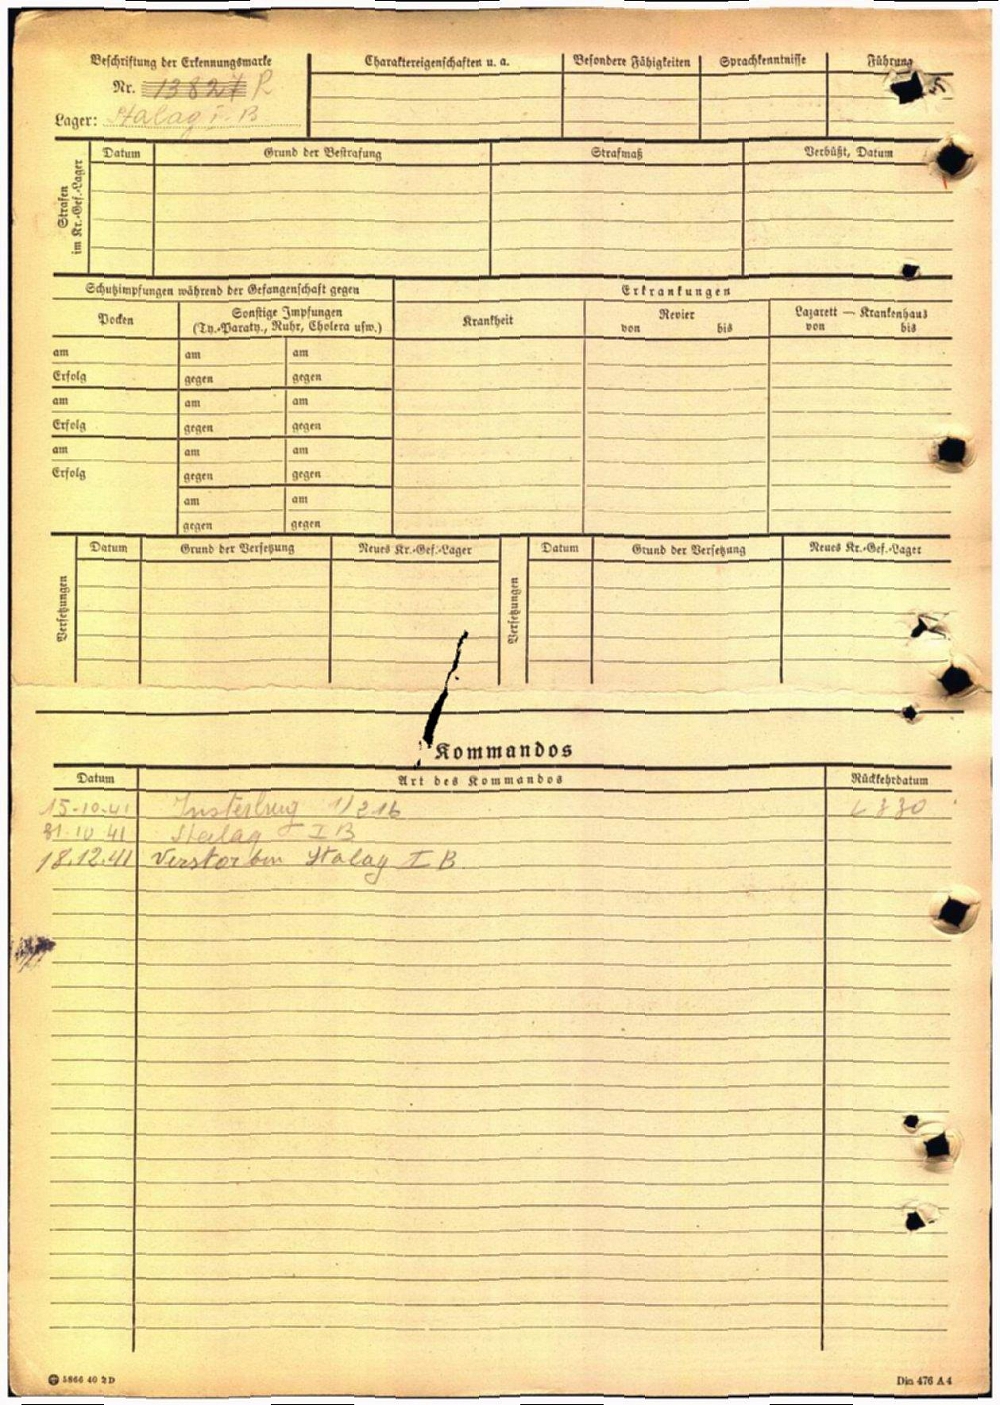 Beschriftung der Erkennungsmarke
Nr. 13827 R
Lager: Stalag I-B
Charaktereigenschaften u. a.
Besondere Fähigkeiten
Sprachkenntnisse
Führung
Strafen im Kr.-Gef.-Lager
Datum
Grund der Bestrafung
Strafmaß
Verbüßt, Datum
Schutzimpfungen während der Gefangenschaft gegen
Erkrankungen
Pocken
Sonstige Impfungen
(Ty.-Paraty., Ruhr, Cholera usw.)
Krankheit
Revier
von bis
Lazarett — Krankenhaus
von bis
am am am
Erfolg gegen gegen
am am am
Erfolg gegen gegen
am am am
Erfolg gegen gegen
am am
gegen gegen
Versetzungen
Datum
Grund der Versetzung
Neues Kr.-Gef.-Lager
Versetzungen
Datum
Grund der Versetzung
Neues Kr.-Gef.-Lager
Kommandos
Datum Art des Kommandos Rückkehrdatum
15.10.41 Insterburg 1/216
31.10 41 Stalag I B
18.12.41 Verstorben Stalag I B
5866 40 2D
Din 476 A 4